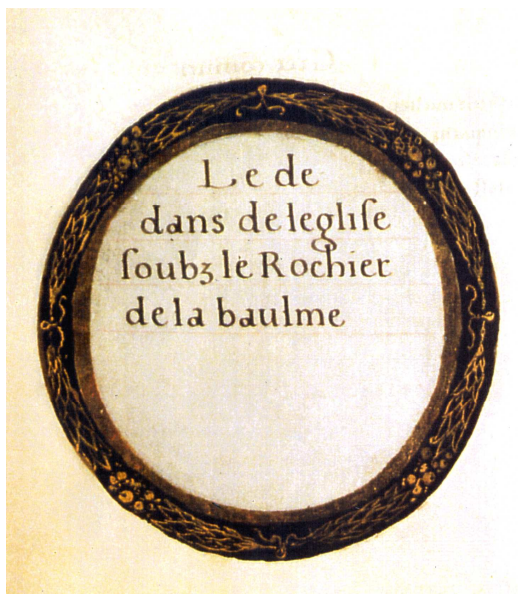 Le de
dans de leglise
soubz le Rochier
de la baulme